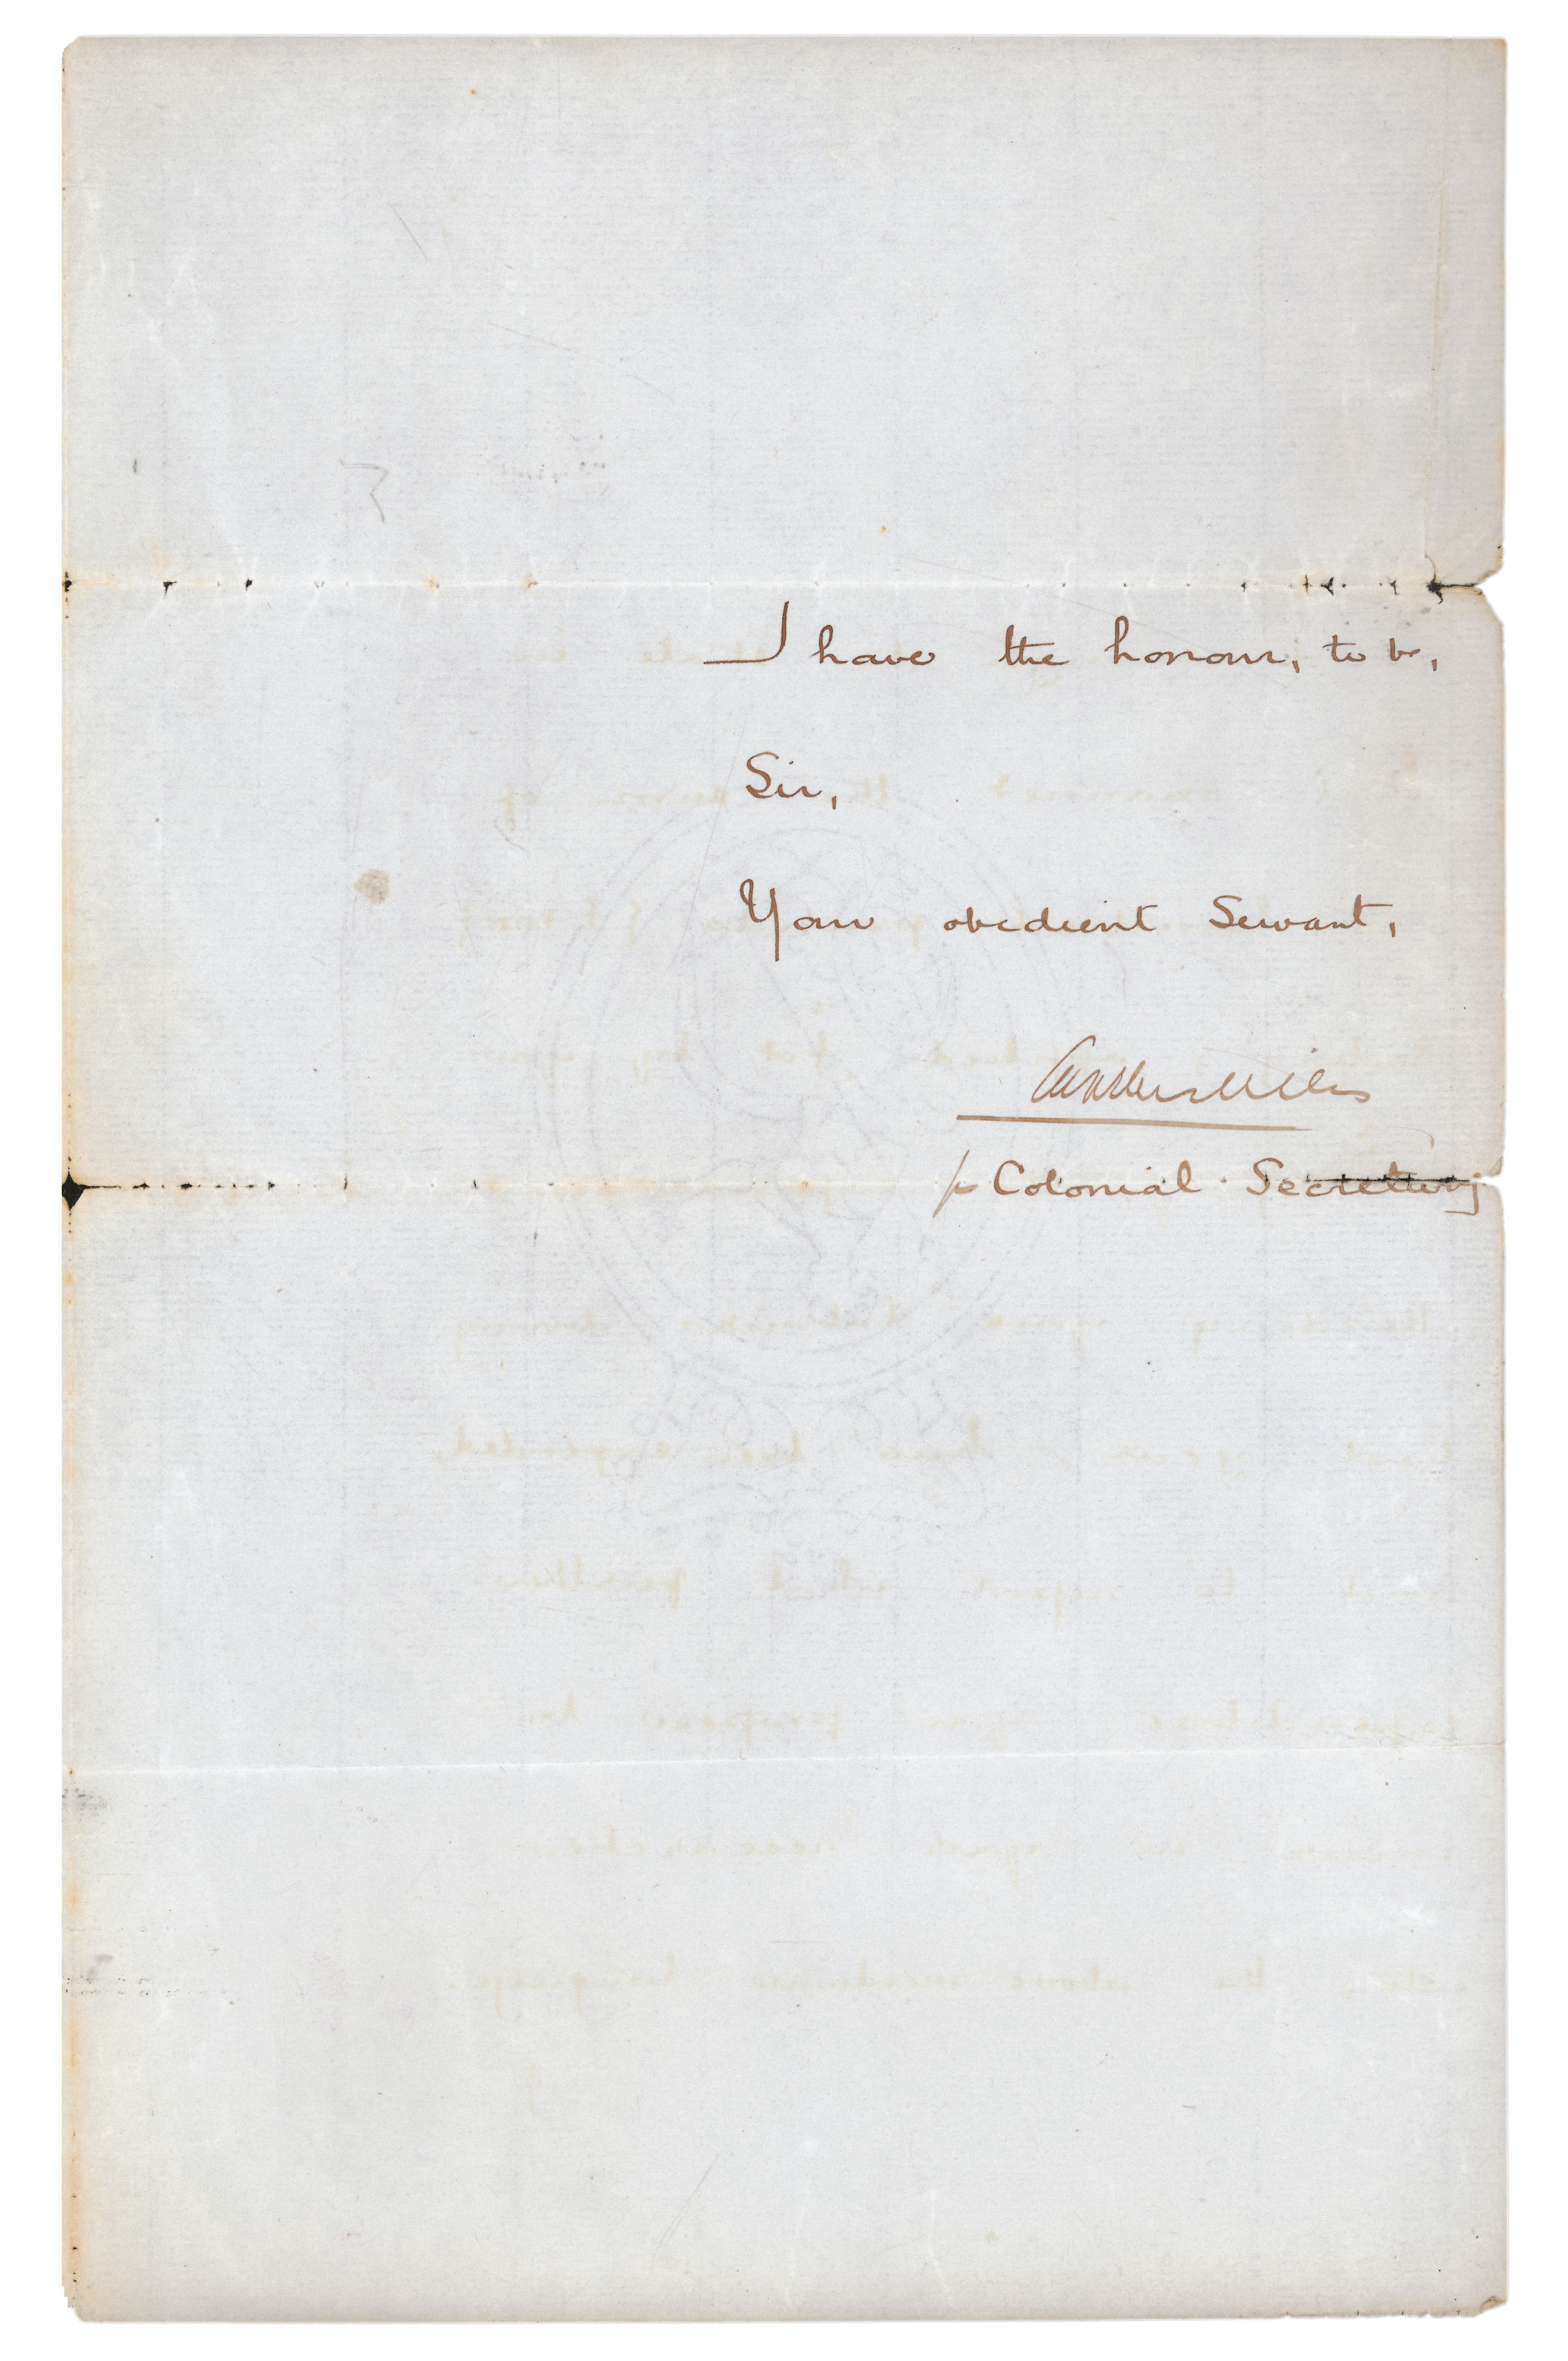 I have the honour, to be,
Sir,
Your obedient Servant,
p Colonial Secretary